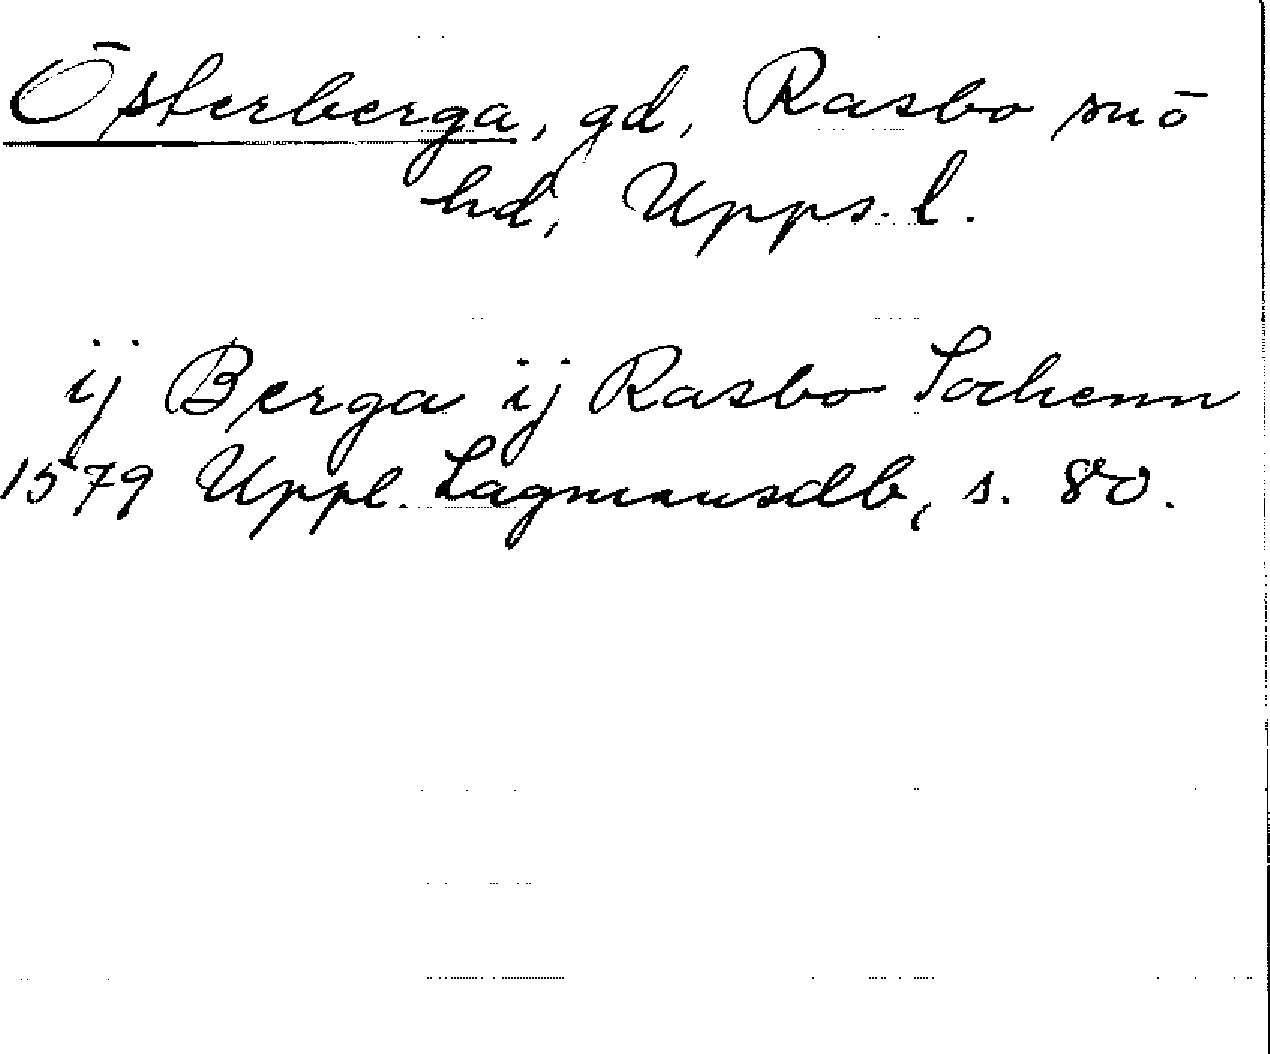 Österberga, gd, Rasbo snö
hd, Upps. l.
ij Berga ij Rasbo Sochenn
1579 Uppl. Lagmansdb, s. 80.